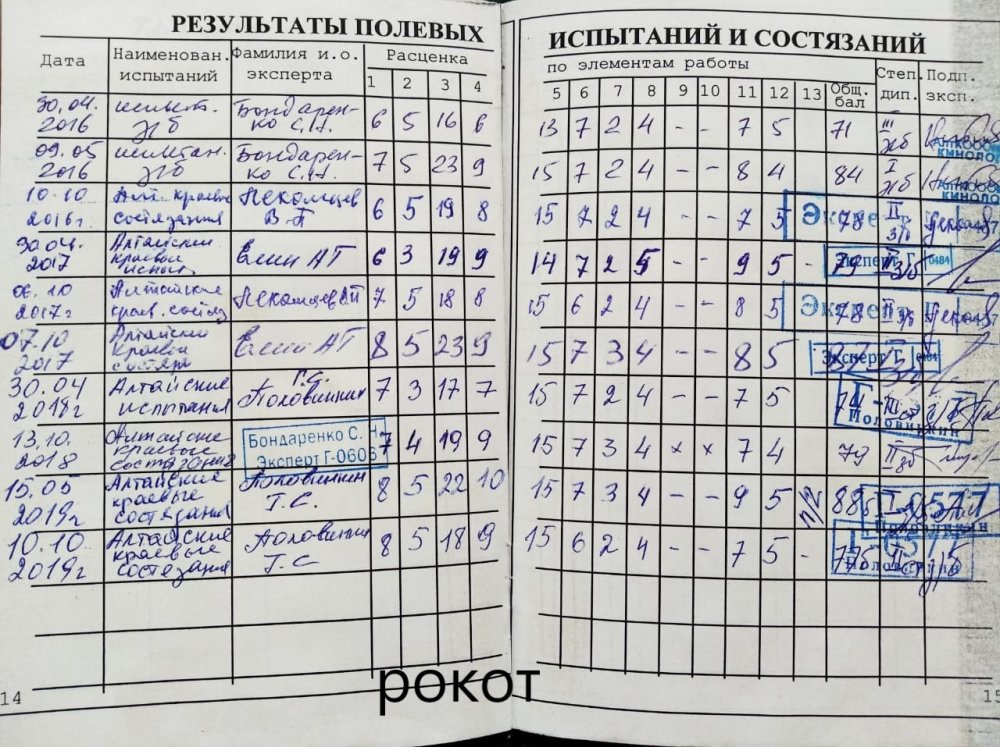 РЕЗУЛЬТАТЫ ПОЛЕВЫХ ИСПЫТАНИЙ И СОСТЯЗАНИЙ
Дата Наименован. испытаний Фамилия и.о. эксперта Расценка по элементам работы Степ. дип. Подп. эксп.
1 2 3 4 5 6 7 8 9 10 11 12 13 Общ. бал
30.04. 2016 испыт. Бондарен- 6 5 16 6 13 7 2 4 - - 7 5 71 III
ко С.Н.
09.05 2016 Бондарен- 7 5 23 9 15 7 2 4 - - 8 4 84 I
ко С.Н.
10.10 2016г краевые состязания Пекомцев 6 5 19 8 15 7 2 4 - - 7 5 78 II
30.04. 2017 Алтайский краевой Елин АТ 6 3 19 9 14 7 2 5 - - 9 5 - 79
06.10 2017г Алтайские краев. состяз Пекомцев 7 5 18 8 15 6 2 4 - - 8 5 78 II
07.10 2017 Елин АТ 8 5 23 9 15 7 3 4 - - 8 5
30.04 2018г Алтайские испытания Половинкин Г.С. 7 3 17 7 15 7 2 4 - - 7 5
13.10. 2018 Алтайские краевые состязания 7 4 19 9 15 7 3 4 × × 7 4 79 II
Бондаренко С. Н.
Эксперт Г-0606
15.05 2019г Алтайские краевые состязания Половинкин Г.С. 8 5 22 10 15 7 3 4 - - 9 5 88 I
10.10 2019г Алтайские краевые состязания Половинкин Г.С 8 5 18 9 15 6 2 4 - - 7 5 - 775 II
Эксперт Г
Эксперт Г 0484
Эксперт Г
Эксперт Г 0484
Половинкин
0577
Половинкин
Половинкин
14
15
рокот